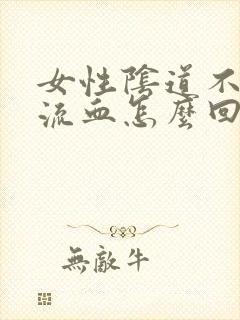 女性陰道不
流血怎麼回
無敵牛